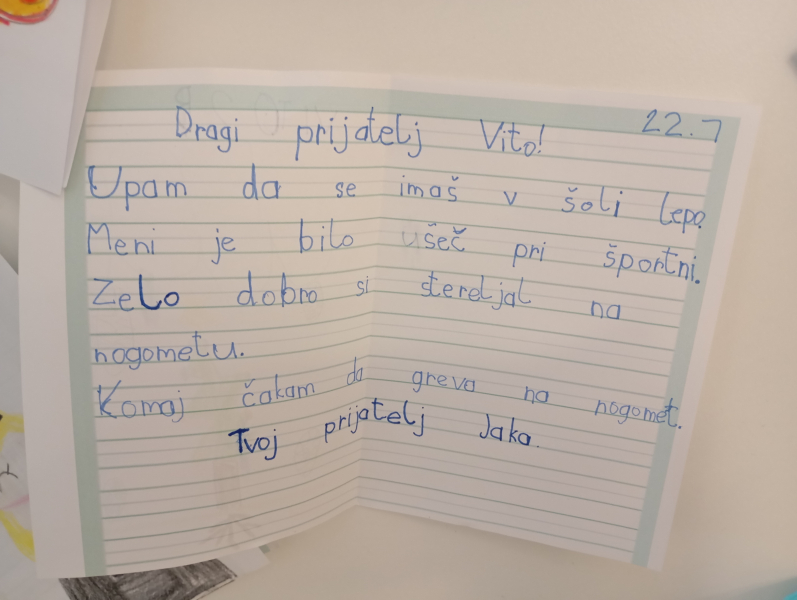 22.7
Dragi prijatelj Vito!
Upam da se imaš v šoli lepo.
Meni je bilo ušeč pri športni.
Zelo dobro si stereljal na
nogometu.
Komaj čakam da greva na nogomet.
Tvoj prijatelj Jaka.